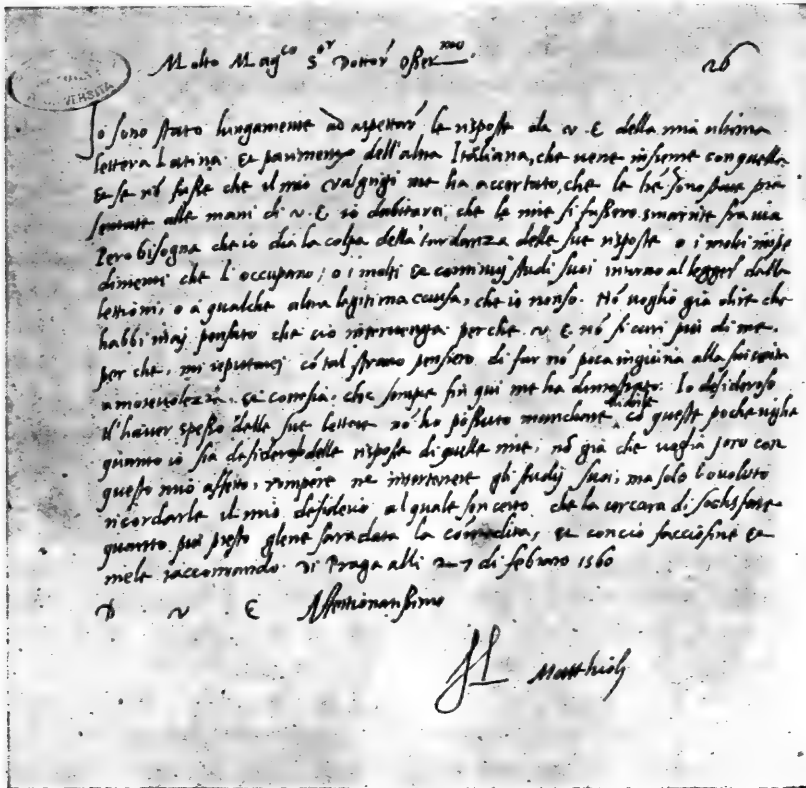 Molto Mag.co S.or Dottor Osser.mo
26
Io sono stato lungamente ad aspettar le risposte da v. E della mia ultima
lettera Latina et parimente dell'altra Italiana, che vene insieme con quella
et se nō fusse che il mio Valgrisi me ha accertato, che le sono state pre
sentate alle mani di v. E io dubitarei, che le mie si fussero smarrite fra via
Pero bisogna che io dia la colpa della tardanza delle sue risposte o i molti impe
dimenti che l'occupano; o i molti et continuj studi suoi intorno al legger delle
lettioni, o à qualche altra legitima causa, che io non so. Nō voglio gia dire che
habbi maj pensato che cio intervenga perche v. E nō si curi piu di me.
per che, mi reputarej cō tal strano pensiero di far nō poca ingiuria alla sua
amorevolezza, et cortesia, che sempre fin qui me ha demostrato. Io desideroso
d'haver spesso delle sue lettere nō ho possuto manchare cō queste poche righe
quanto io sia desideroso delle risposte di quelle mie, nō gia che voglia io con
questo mio affetto, rompere ne intertenere gli studij suoi, ma solo ho voluto
ricordarle il mio desiderio al quale son certo che la cercara di sochisfare
quanto piu presto gliene sara data la cōmodita, et con cio faccio fine et
me le raccomando. Di Praga alli 27 di febraro 1560
D v E Affettionatissimo
Matthioli